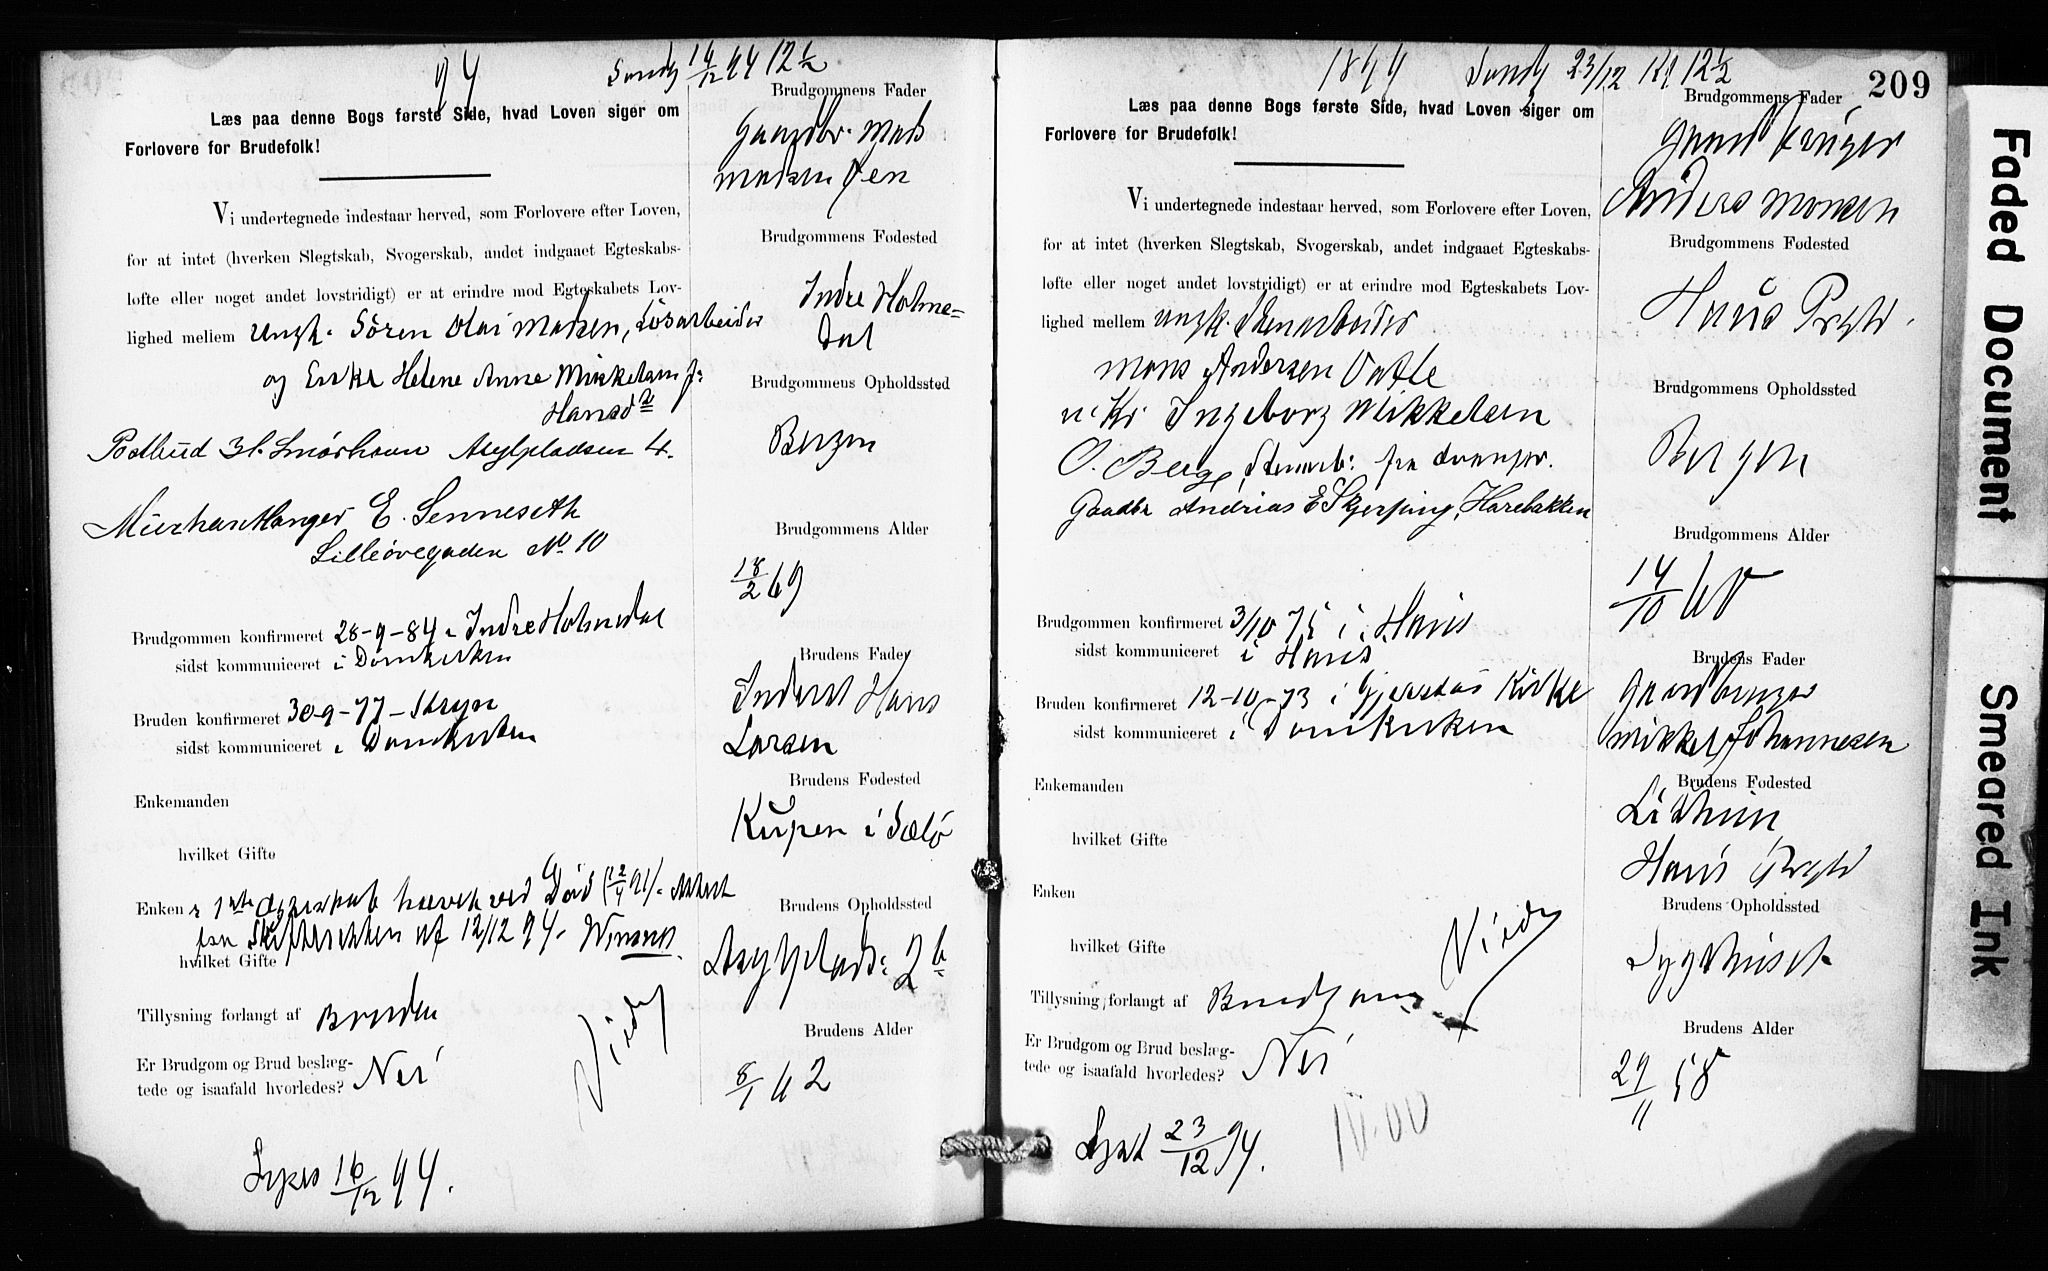 94 Søndg 16/12 94 12½
Læs paa denne Bogs første Side, hvad Loven siger om
Forlovere for Brudefolk!
Vi undertegnede indestaar herved, som Forlovere efter Loven,
for at intet (hverken Slegtskab, Svogerskab, andet indgaaet Egteskabs-
løfte eller noget andet lovstridigt) er at erindre mod Egteskabets Lov-
lighed mellem Ungk. Sören Olai Madsen, Løsarbeider
og Enke Helene Anne Mikkelsen f:
Hansd
Postbud H. Smørhavn Asylpladsen 4.
E. Senneseth
Lilleøvregaden No 10
Brudgommen konfirmeret 28-9-84 i Indre Holmedal
sidst kommuniceret i Domkirken
Bruden konfirmeret 30-9-77 - Stryn
sidst kommuniceret i Domkirken
Enkemanden
hvilket Gifte
Enken 1ste Egteskab hævet ved Død (12/4 91). Attest
fra Skifteretten af 12/12 94.
hvilket Gifte
Tillysning forlangt af Bruden
Er Brudgom og Brud beslæg-
tede og isaafald hvorledes? Nei
Viedg
16/12 94.
Brudgommens Fader
Gaardbr. Mads
Madsen
Brudgommens Fødested
Indre Holme-
dal
Brudgommens Opholdssted
Bergen
Brudgommens Alder
18/2 69
Brudens Fader
Inderst Hans
Larsen
Brudens Fødested
i Sælø
Brudens Opholdssted
Asylplads: 2b
Brudens Alder
8/1 62
1894 Søndg 23/12 Kl 12½
209
Læs paa denne Bogs første Side, hvad Loven siger om
Forlovere for Brudefolk!
Vi undertegnede indestaar herved, som Forlovere efter Loven,
for at intet (hverken Slegtskab, Svogerskab, andet indgaaet Egteskabs-
løfte eller noget andet lovstridigt) er at erindre mod Egteskabets Lov-
lighed mellem Ungk. Stenarbeider
Mons Andersen Vatle
Ingeborg Mikkelsen
O. Berge, Stenarb: fra
Gaadbr Andrias E Skjerping, Harebakken
Brudgommen konfirmeret 3/10 75 i Haus
sidst kommuniceret i Haus
Bruden konfirmeret 12-10-73 i Gjerstad Kirke
sidst kommuniceret i Domkirken
Enkemanden
hvilket Gifte
Enken
hvilket Gifte
Viedg
Tillysning forlangt af Brudgom
Er Brudgom og Brud beslæg-
tede og isaafald hvorledes? Nei
Lyst 23/12 94.
Brudgommens Fader
Gaardbruger
Anders Monsen
Brudgommens Fødested
Haus Prgld.
Brudgommens Opholdssted
Bergen
Brudgommens Alder
14/10 60
Brudens Fader
Gaardbruger
Mikkel Johannesen
Brudens Fødested
Haus Prgld
Brudens Opholdssted
Sygehuset
Brudens Alder
29/11 58
Faded Document
Smeared Ink